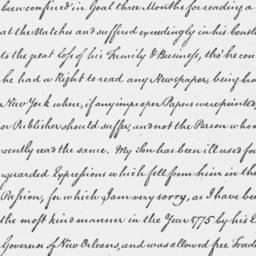 been confined in Goal three Months for reading a
at the Natches and suffered exceedingly in his Const
to the great loss of his Family & Business, tho' he con
he had a Right to read any Newspaper, being bro
New York where, if any improper Papers were printed,
or Publisher should suffer, and not the Person who
cently read the same. My Son has been ill used for
guarded Expressions which fell from him in the
Passion, for which I am very sorry, as I have bee
the most kind manner in the Year 1775 by his
Governor of New Orleans, and was allowed free Trade